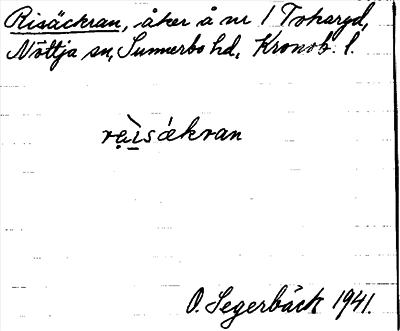 Risäckran, åker å nr 1 Toharyd,
Nöttja sn, Sunnerbo hd, Kronob. l.
ra̤i̲sǽkran
O. Segerbäck 1941.